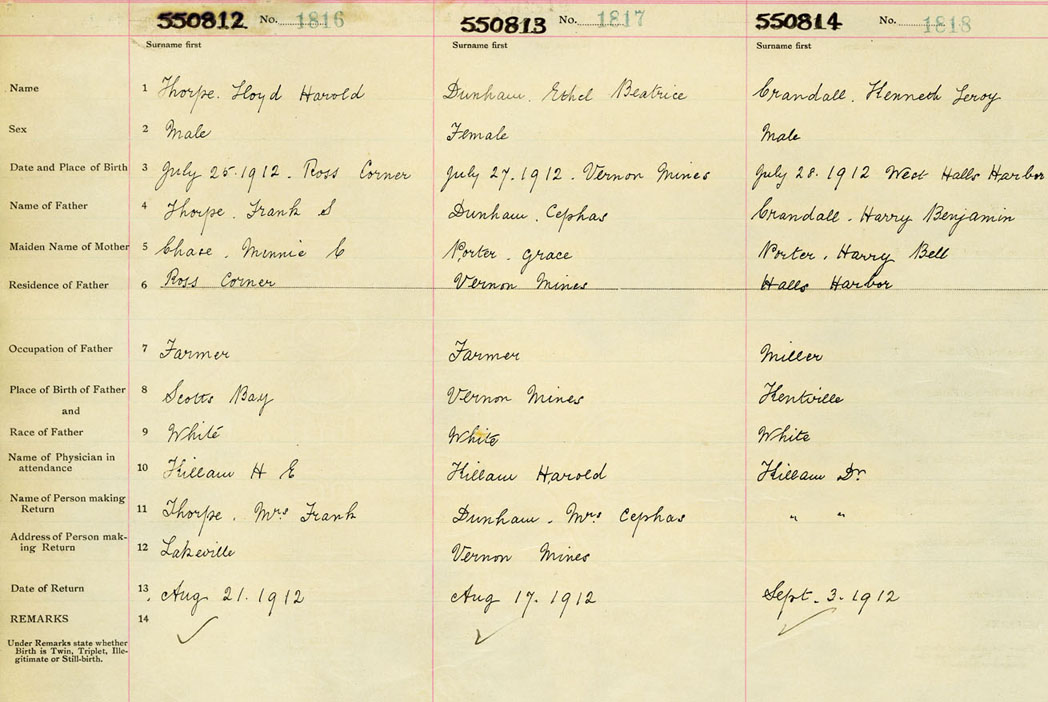 550812 No. 1816 550813 No. 1817 550814 No. 1818
Surname first Surname first Surname first
Name 1 Thorpe. Lloyd Harold Dunham. Ethel Beatrice Crandall. Kenneth Leroy
Sex 2 Male Female Male
Date and Place of Birth 3 July 25.1912. Ross Corner July 27.1912. Vernon Mines July 28.1912 West Halls Harbor
Name of Father 4 Thorpe. Frank S Dunham. Cephas Crandall. Harry Benjamin
Maiden Name of Mother 5 Chase, Minnie C Porter. Grace Porter, Harry Bell
Residence of Father 6 Ross Corner Vernon Mines Halls Harbor
Occupation of Father 7 Farmer Farmer Miller
Place of Birth of Father 8 Scotts Bay Vernon Mines Kentville
and
Race of Father 9 White White White
Name of Physician in
attendance 10 Killam H E Killam Harold Killam Dr.
Name of Person making
Return 11 Thorpe. Mrs Frank Dunham. Mrs Cephas " "
Address of Person mak-
ing Return 12 Lakeville Vernon Mines
Date of Return 13 Aug 21.1912 Aug 17.1912 Sept. 3.1912
REMARKS 14 ✓ ✓ ✓
Under Remarks state whether
Birth is Twin, Triplet, Ille-
gitimate or Still-birth.